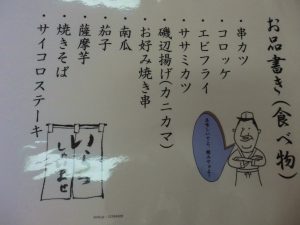 お品書き(食べ物)
・串カツ
・コロッケ
・エビフライ
・ササミカツ
・磯辺揚げ(カニカマ)
・お好み焼き串
・南瓜
・茄子
・薩摩芋
・焼きそば
・サイコロステーキ
いらっ
しゃいませ